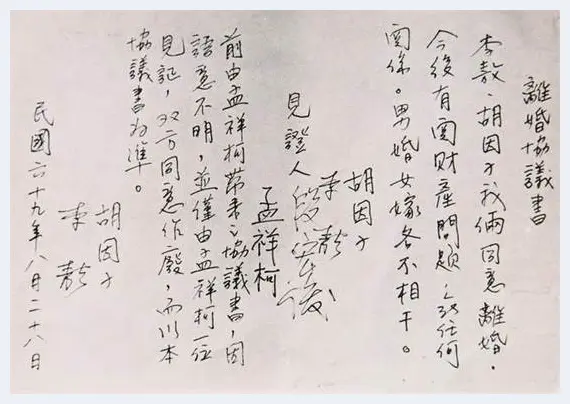 離婚協議書
李敖、胡因子我倆同意離婚。
今後有関財產問題、任何
関係。男婚女嫁各不相干。
胡因子
李敖
見證人 段宏俊
孟祥柯
前由孟祥柯帶來之協議書，因
語意不明，並僅由孟祥柯一位
見証，双方同意作廢，而以本
協議書為準。
胡因子
李敖
民國六十九年八月二十八日